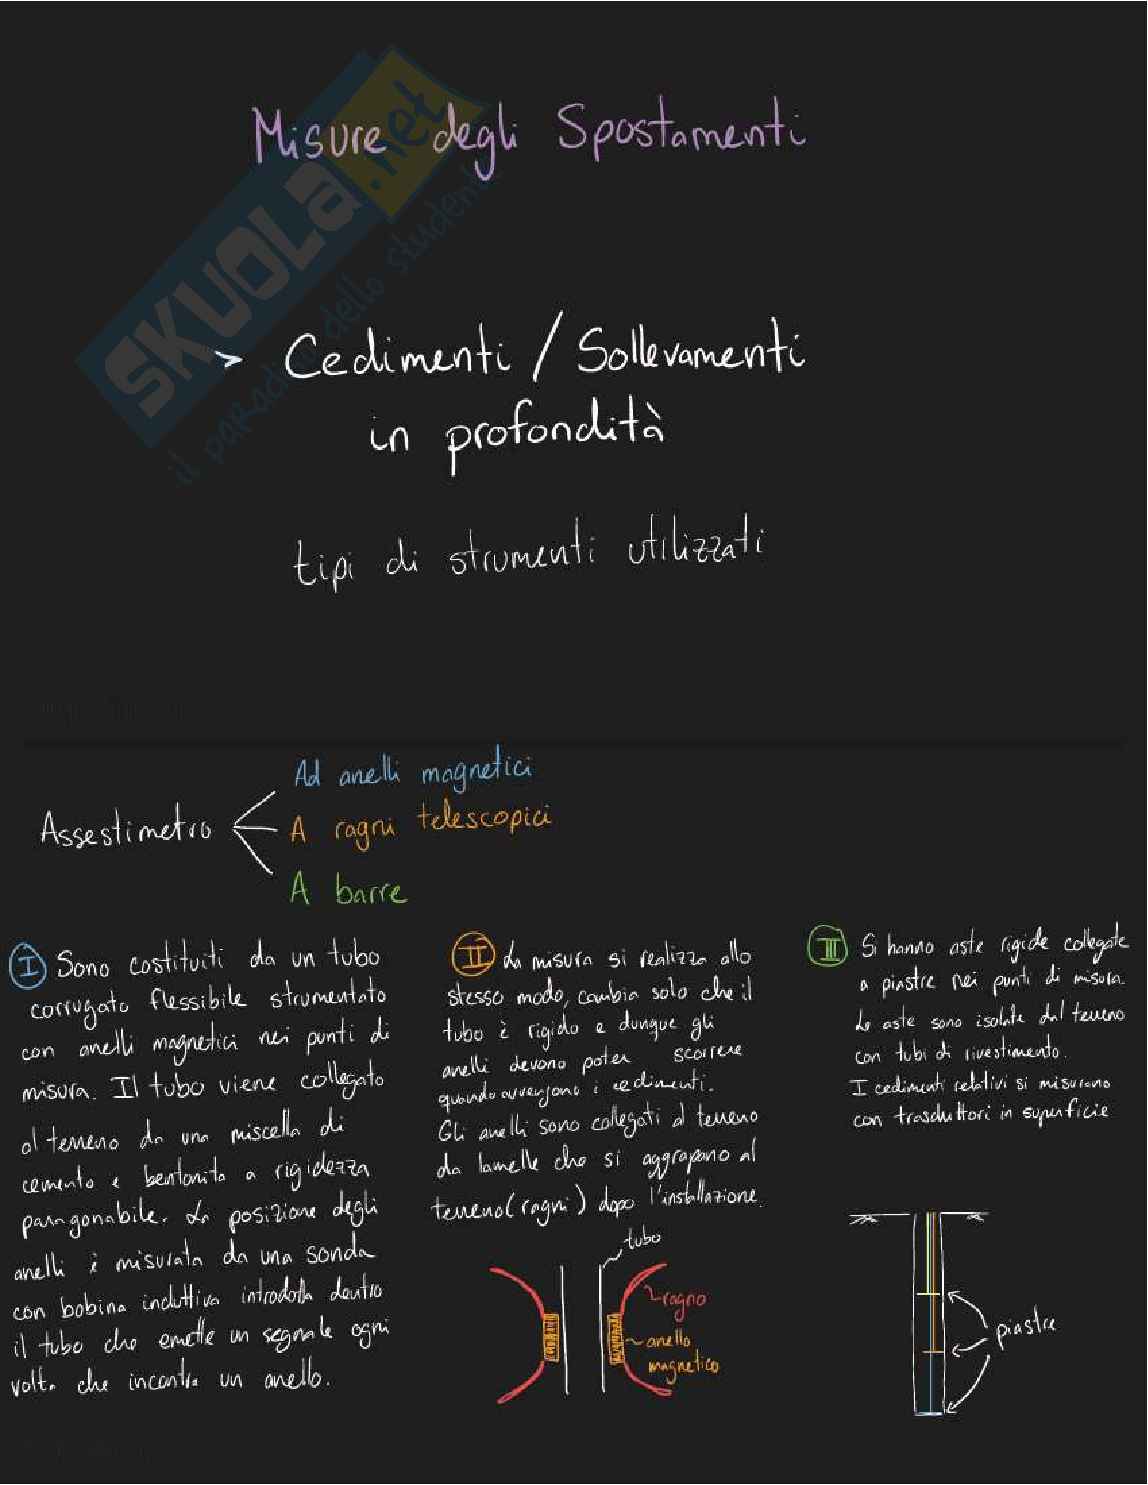 Misure degli Spostamenti
SKUOLA.net
il paradiso dello studente
> Cedimenti / Sollevamenti
in profondità
tipi di strumenti utilizzati
Assestimetro
Ad anelli magnetici
A ragni telescopici
A barre
I Sono costituiti da un tubo
corrugato flessibile strumentato
con anelli magnetici nei punti di
misura. Il tubo viene collegato
al terreno da una miscella di
cemento e bentonita a rigidezza
paragonabile. La posizione degli
anelli è misurata da una sonda
con bobina induttiva introdotta dentro
il tubo che emette un segnale ogni
volta che incontra un anello.
II La misura si realizza allo
stesso modo, cambia solo che il
tubo è rigido e dunque gli
anelli devono poter scorrere
quando avvengono i cedimenti.
Gli anelli sono collegati al terreno
da lamelle che si aggrapano al
terreno (ragni) dopo l'installazione.
tubo
ragno
anello
magnetico
III Si hanno aste rigide collegate
a piastre nei punti di misura.
Le aste sono isolate dal terreno
con tubi di rivestimento.
I cedimenti relativi si misurano
con trasduttori in superficie
piastre